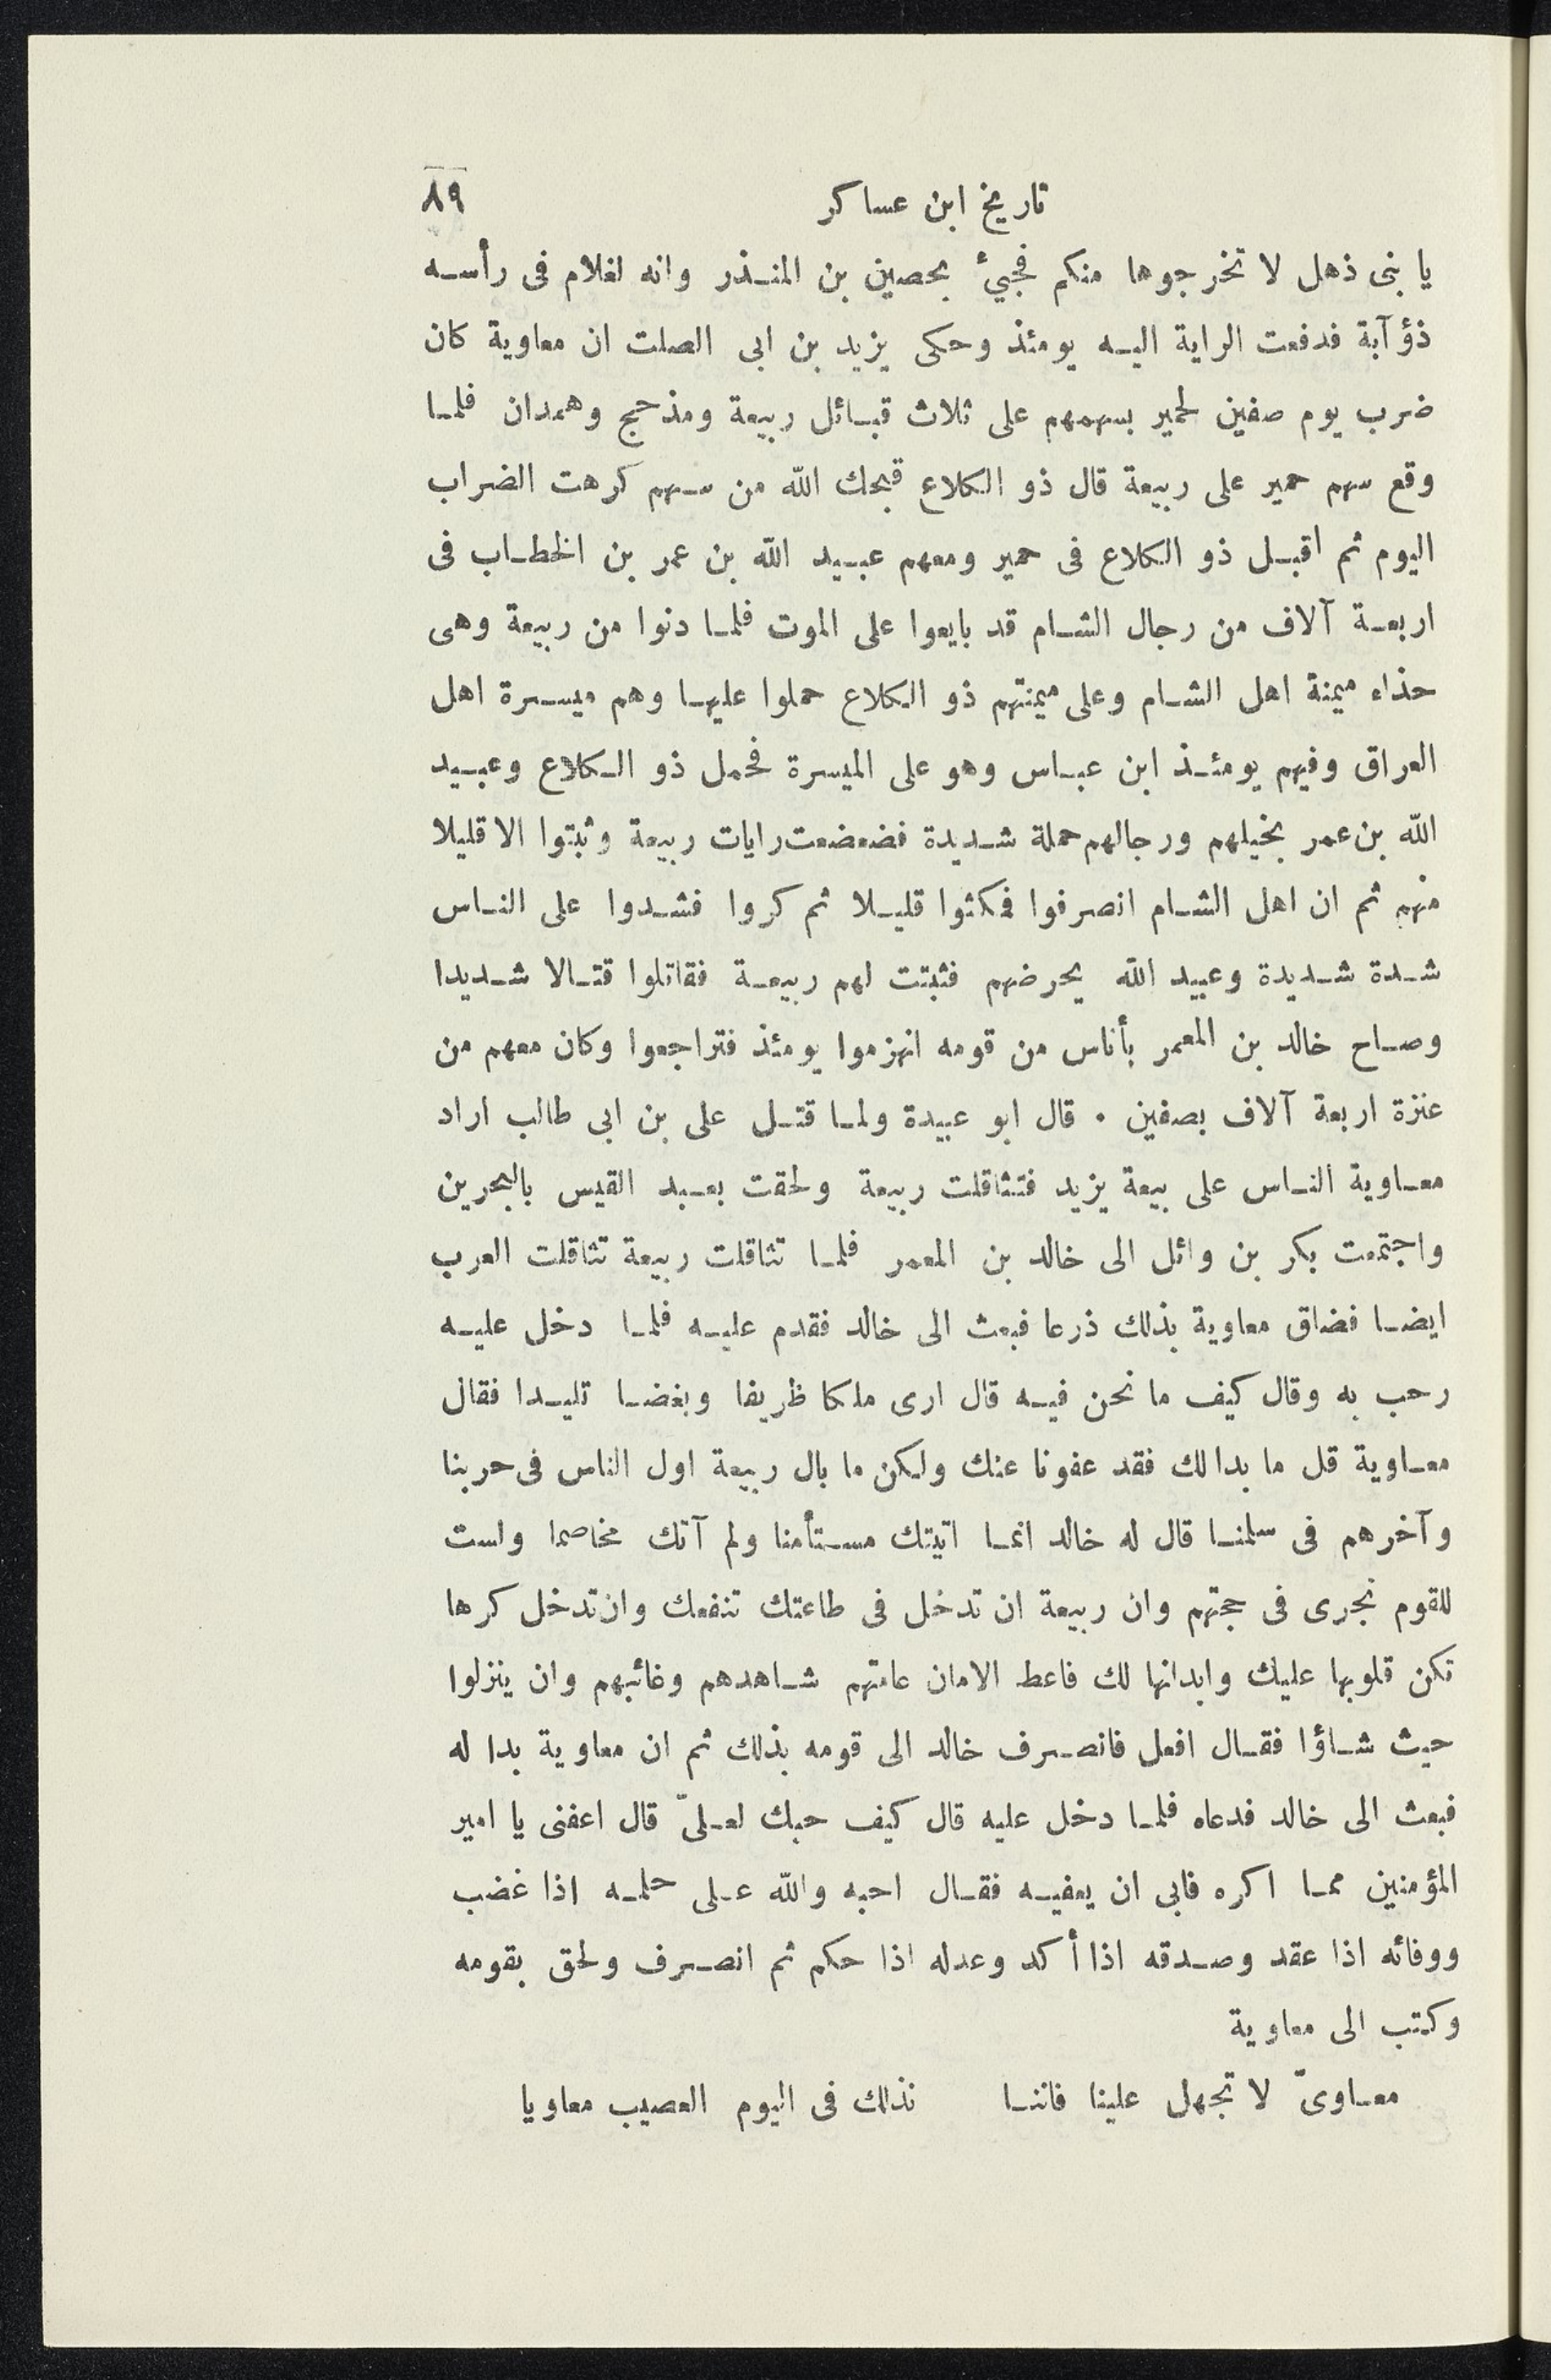 تاريخ ابن عساكر ٨٩
يا بنى ذهل لا تخرجوها منكم فجيئ بحصين بن المنذر وانه لغلام فى رأسه
ذؤآبة فدفعت الراية اليه يومئذ وحكى يزيد بن ابى الصلت ان معاوية كان
ضرب يوم صفين لحمير بسهمهم على ثلاث قبائل ربيعة ومذحج وهمدان فلما
وقع سهم حمير على ربيعة قال ذو الكلاع قبحك الله من سهم كرهت الضراب
اليوم ثم اقبل ذو الكلاع فى حمير ومعهم عبيد الله بن عمر بن الخطاب فى
اربعة آلاف من رجال الشام قد بايعوا على الموت فلما دنوا من ربيعة وهى
حذاء ميمنة اهل الشام وعلى ميمنتهم ذو الكلاع حملوا عليها وهم ميسرة اهل
العراق وفيهم يومئذ ابن عباس وهو على الميسرة فحمل ذو الكلاع وعبيد
الله بن عمر بخيلهم ورجالهم حملة شديدة فضعضعت رايات ربيعة وثبتوا الا قليلا
منهم ثم ان اهل الشام انصرفوا فمكثوا قليلا ثم كروا فشدوا على الناس
شدة شديدة وعبيد الله يحرضهم فثبتت لهم ربيعة فقاتلوا قتالا شديدا
وصاح خالد بن المعمر بأناس من قومه انهزموا يومئذ فتراجعوا وكان معهم من
عنزة اربعة آلاف بصفين . قال ابو عبيدة ولما قتل على بن ابى طالب اراد
معاوية الناس على بيعة يزيد فتثاقلت ربيعة ولحقت بعبد القيس بالبحرين
واجتمعت بكر بن وائل الى خالد بن المعمر فلما تثاقلت ربيعة تثاقلت العرب
ايضا فضاق معاوية بذلك ذرعا فبعث الى خالد فقدم عليه فلما دخل عليه
رحب به وقال كيف ما نحن فيه قال ارى ملكا ظريفا وبغضا تليدا فقال
معاوية قل ما بدا لك فقد عفونا عنك ولكن ما بال ربيعة اول الناس فى حربنا
وآخرهم فى سلمنا قال له خالد انما اتيتك مستأمنا ولم آتك مخاصما ولست
للقوم نجرى فى حجتهم وان ربيعة ان تدخل فى طاعتك تنفعك وان تدخل كرها
تكن قلوبها عليك وابدانها لك فاعط الامان عامتهم شاهدهم وغائبهم وان ينزلوا
حيث شاؤا فقال افعل فانصرف خالد الى قومه بذلك ثم ان معاوية بدا له
فبعث الى خالد فدعاه فلما دخل عليه قال كيف حبك لعلىّ قال اعفنى يا امير
المؤمنين مما اكره فابى ان يعفيه فقال احبه والله على حلمه اذا غضب
ووفائه اذا عقد وصدقه اذا أكد وعدله اذا حكم ثم انصرف ولحق بقومه
وكتب الى معاوية
معاوىّ لا تجهل علينا فاننا نذلك فى اليوم العصيب معاويا